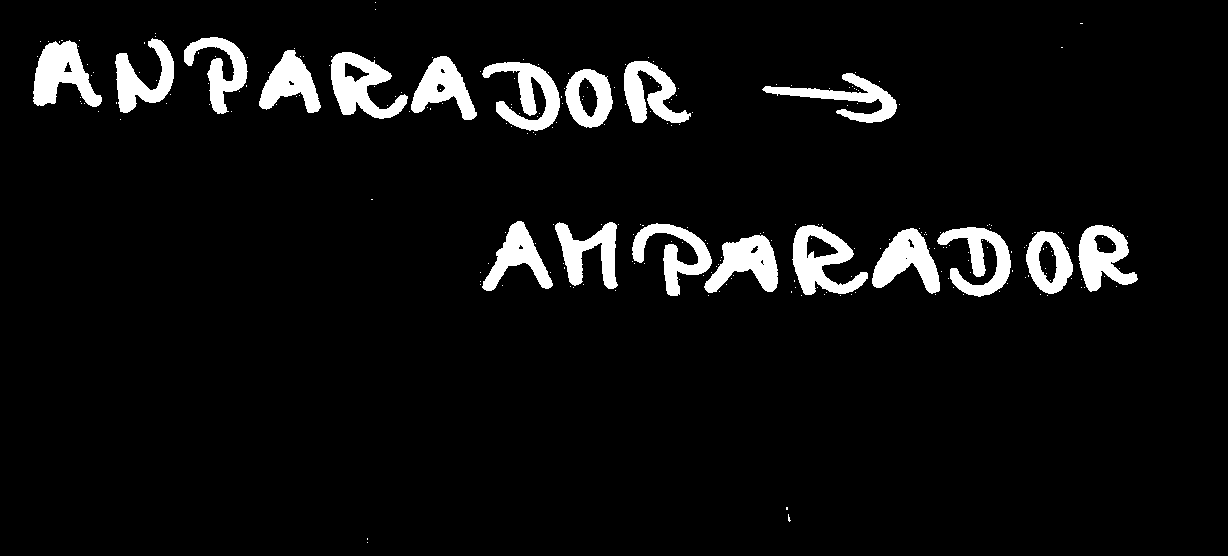 ANPARADOR →
AMPARADOR